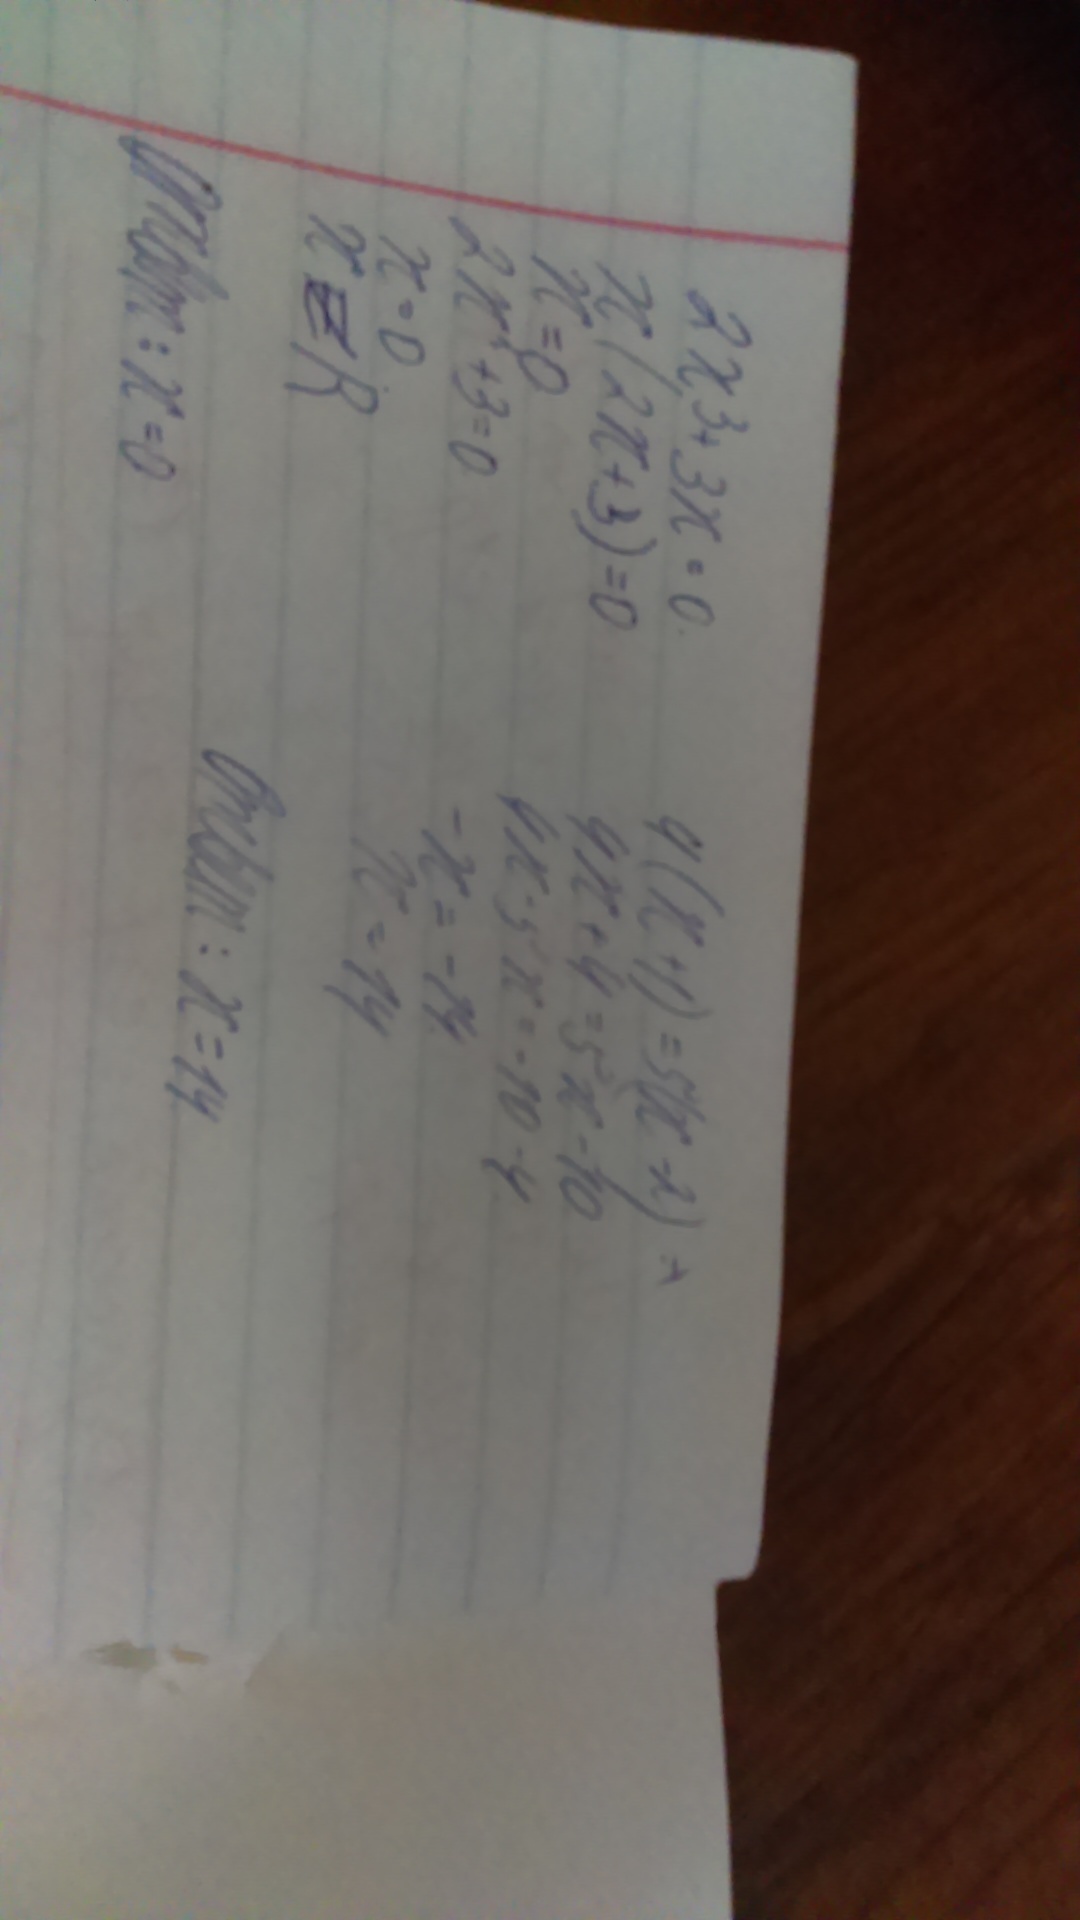 2x³+3x=0
x(2x+3)=0
x=0
2x²+3=0
x=0
x∈R
Ответ: x=0
4(x+1)=5(x-2) +
4x+4=5x-10
4x-5x=-10-4
-x=-14
x=14
Ответ: x=14